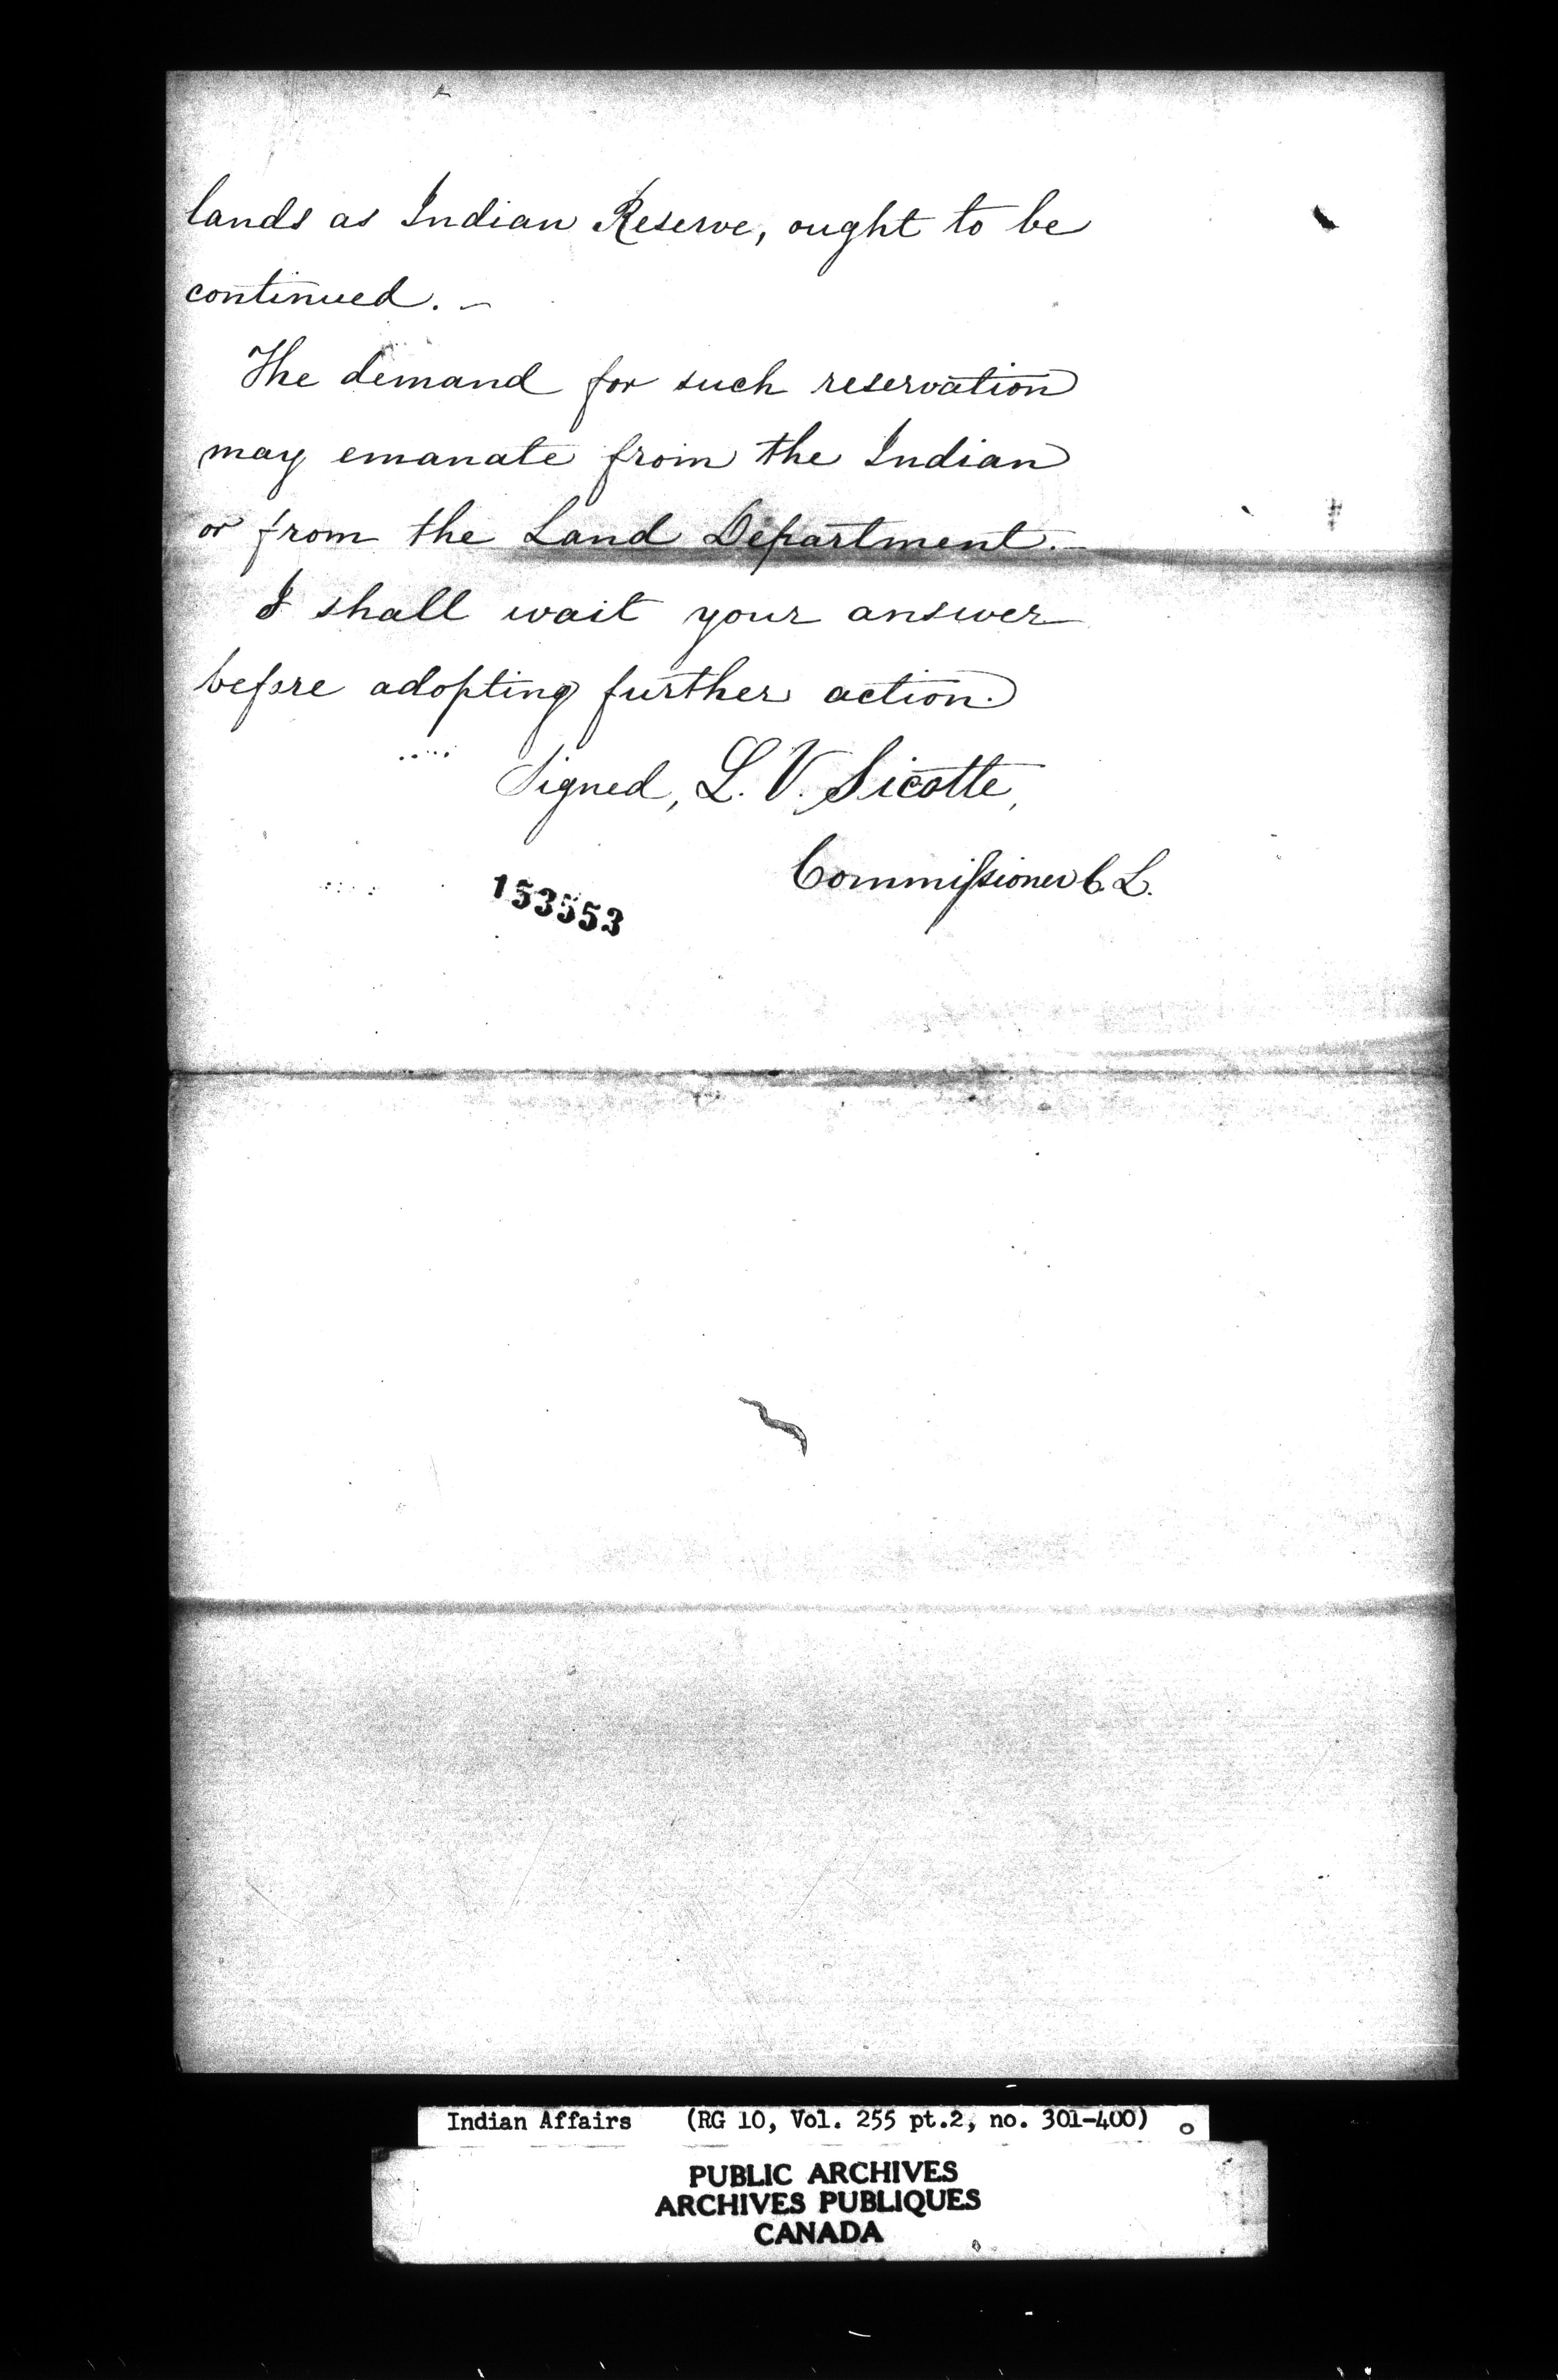 lands as Indian Reserve, ought to be
continued. -
The demand for such reservation
may emanate from the Indian
or from the Land Department. -
I shall wait your answer
before adopting further action.
Signed, L. V. Sicotte,
Commissioner C. L.
153553
Indian Affairs (RG 10, Vol. 255 pt.2, no. 301-400)
PUBLIC ARCHIVES
ARCHIVES PUBLIQUES
CANADA